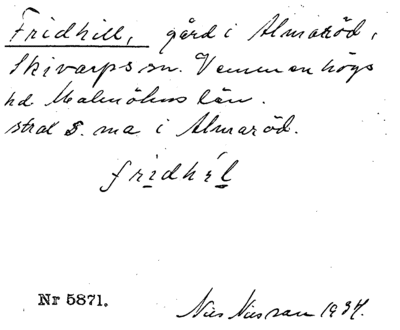 Fridhill, gård i Almaröd,
Skivarps sn. Vemmenhögs
hd Malmöhus län.
strax s. om a i Almaröd.
fridhíl
Nr 5871.
Nils Nilsson 1934.